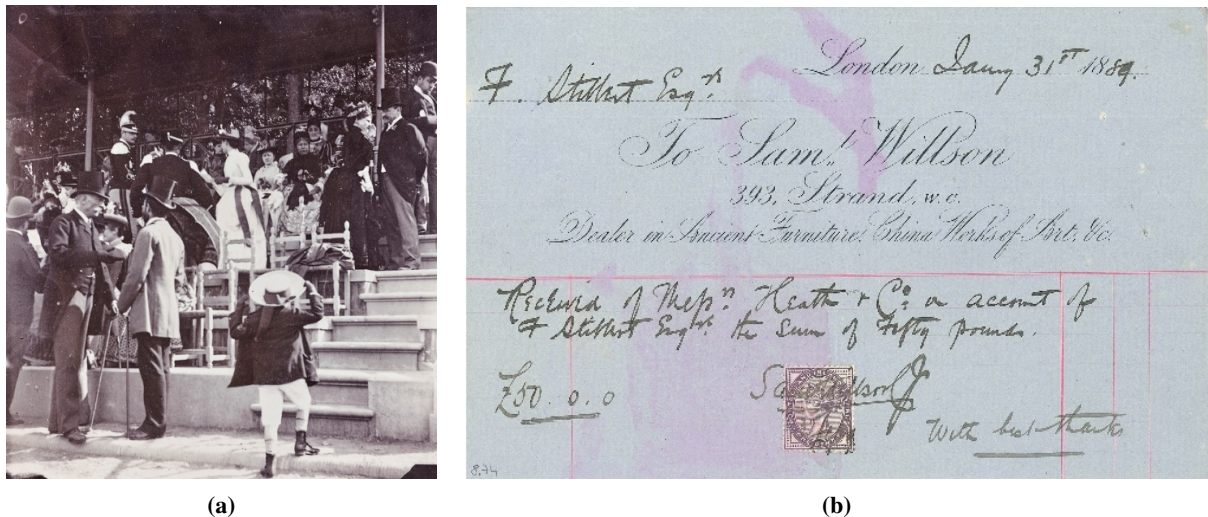 London Jany 31ST 1889.
F. Stibbert Esqre
To Saml. Willson
393, Strand, w.c.
Dealer in Ancient Furniture, China Works of Art, &c.
Received of Messrs Heath & Co: on account of
F Stibbert Esqre the Sum of Fifty pounds.
£50. 0. 0
Saml Willson
With best thanks
8.74
(a)
(b)